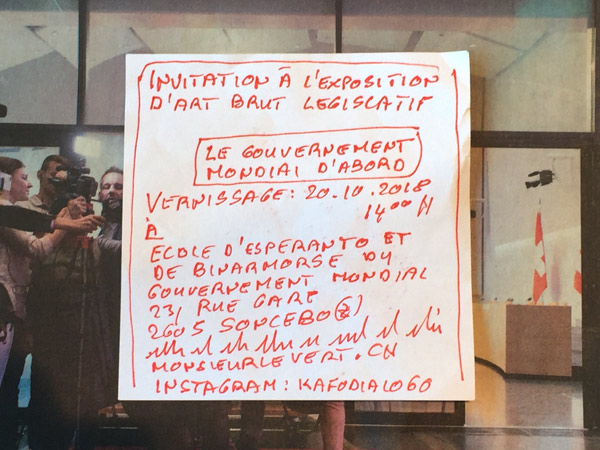 INVITATION À L'EXPOSITION
D'ART BRUT LEGISLATIF
LE GOUVERNEMENT
MONDIAL D'ABORD
VERNISSAGE: 20.10.2018
14°° H
À
ECOLE D'ESPERANTO ET
DE BINARMORSE DU
GOUVERNEMENT MONDIAL
23, RUE GARE
2605 SONCEBO(Z)
MONSIEURLEVERT.CH
INSTAGRAM: KAFODIALO60